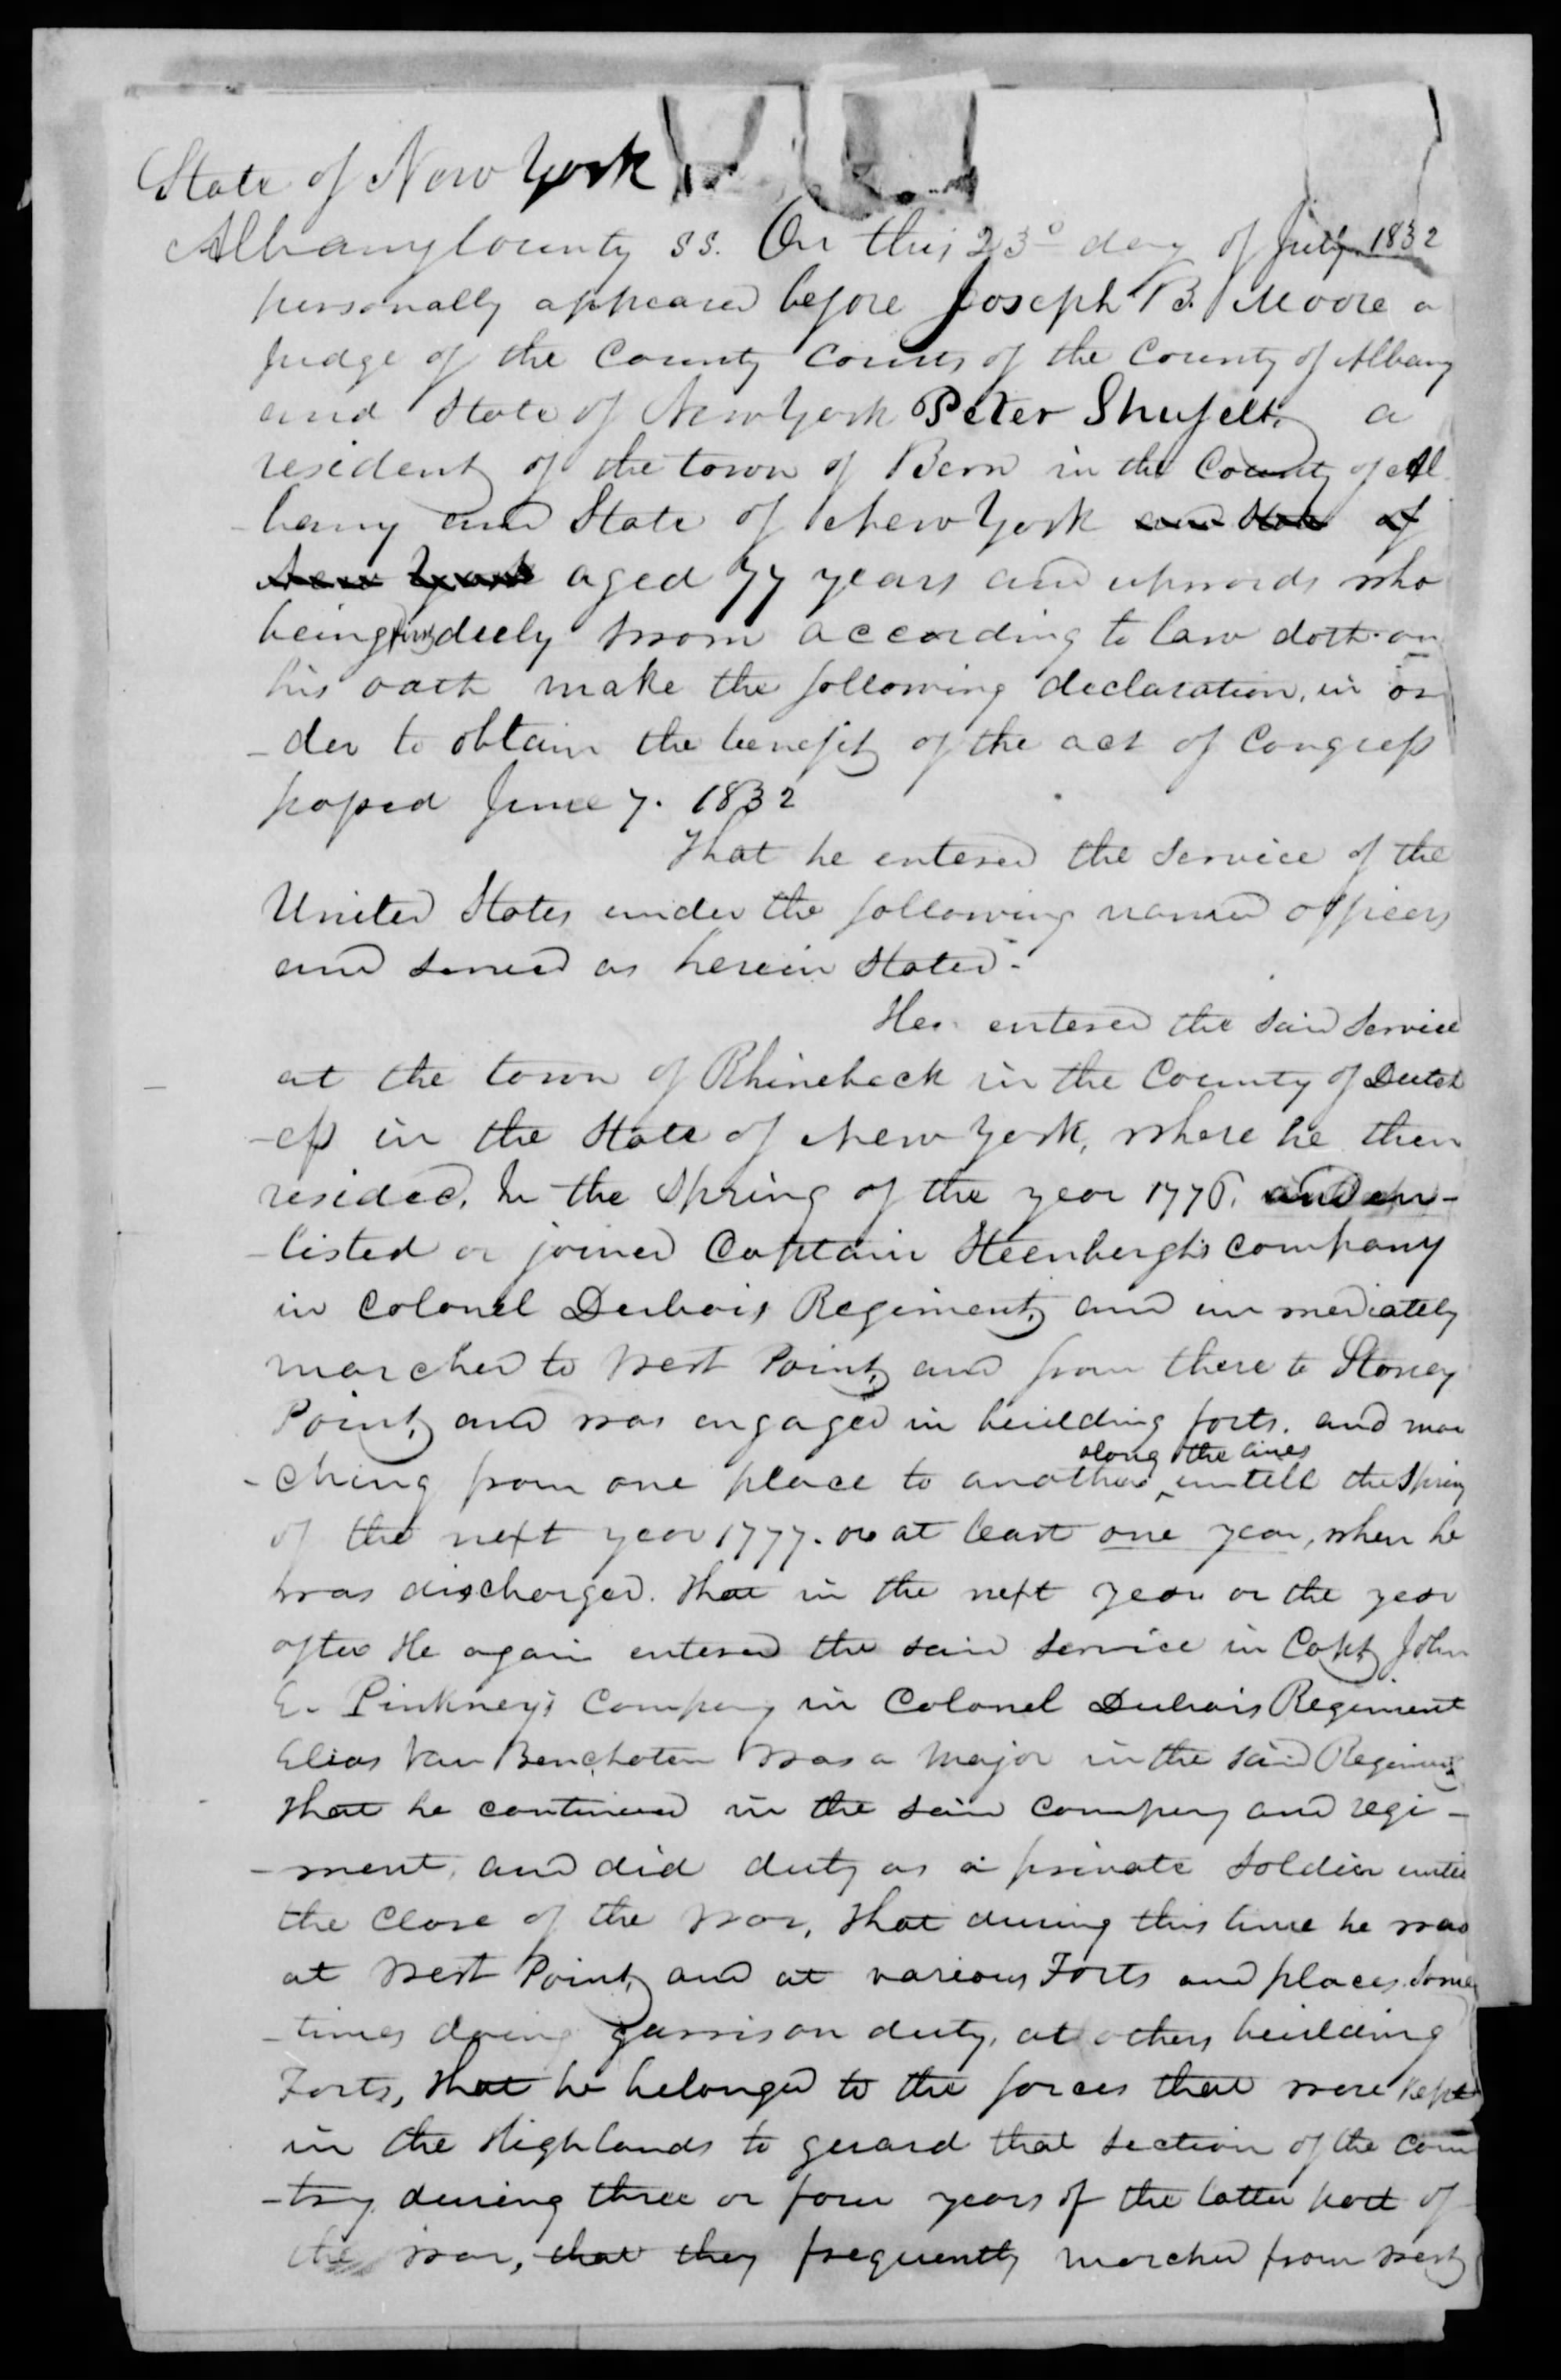 State of New York
Albany County ss. On this 23d day of July 1832
personally appeared before Joseph B. Moore a
judge of the County Courts of the County of Albany
and State of New York Peter Shufelt a
resident of the town of Bern in the County of Al
-bany and State of New York and State of
New York aged 77 years and upwards who
being first duely sworn according to law doth on
his oath make the following declaration, in or
-der to obtain the benefit of the act of Congress
passed June 7. 1832
That he entered the service of the
United States under the following named officers
and served as herein stated.
He entered the said service
at the town of Rhinebeck in the County of Dutch
-ess in the State of New York, where he then
resided. In the Spring of the year 1776. and en-
-listed or joined Captain Steenbergh's company
in Colonel Dubois Regiment, and immediately
marched to West Point, and from there to Stoney
Point, and was engaged in building forts. and mar
-ching from one place to another along the lines untill the Spring
of the next year 1777. or at least one year, when he
was discharged. that in the next year or the year
after He again entered the said service in Capt John
E. Pinkney's Company in Colonel Dubois Regiment
Elias Van Benchoten was a Major in the said Regiment
that he continued in the said company and regi-
-ment, and did duty as a private soldier until
the close of the war, that during this time he was
at West Point, and at various Forts and places. some
-times doing garrison duty, at others building
Forts, that he belonged to the forces that were kept
in the Highlands to guard that section of the coun
-try during three or four years of the latter part of
the war, that they frequently marched from West